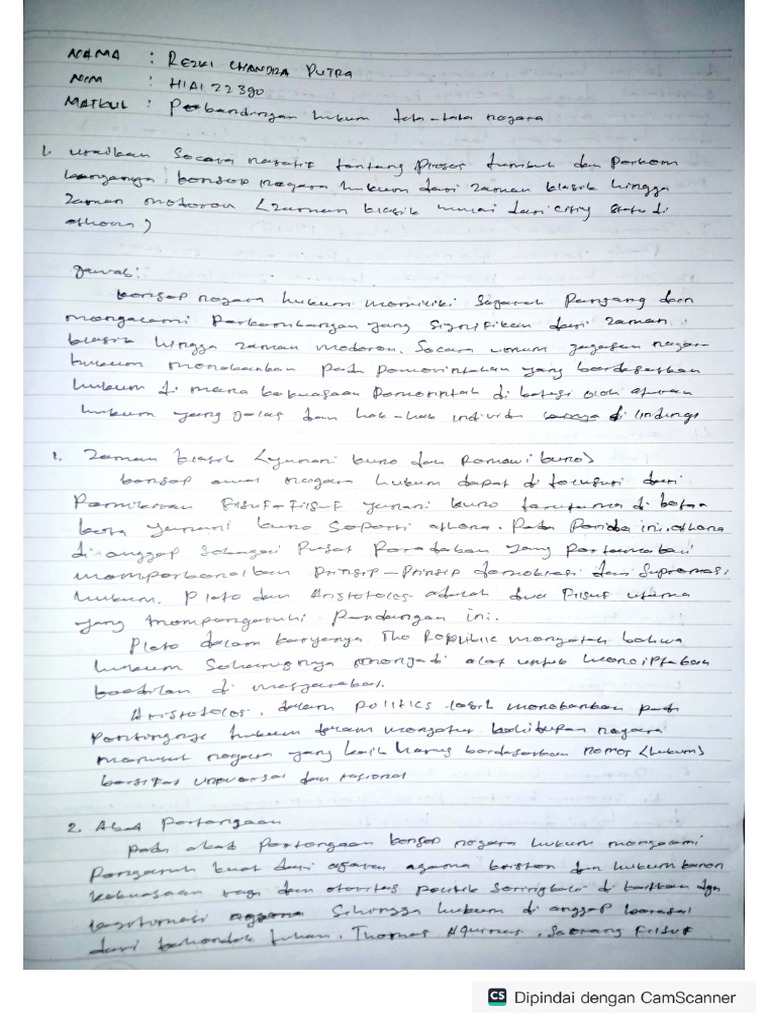 NAMA : REZKI CHANDRA PUTRA
NIM : H1A122390
MATKUL : Perbandingan hukum tata-tata negara
1. uraikan Secara naratif tentang Proses tumbuh dan Perkem
bangannya konsep negara hukum dari zaman klasik hingga
zaman moderen (zaman klasik mulai dari City State di
athena)
Jawab:
konsep negara hukum memiliki Sejarah Panjang dan
mengalami Perkembangan yang Signifikan dari zaman
klasik hingga zaman moderen. Secara umum gagasan negara
hukum menekankan pada pemerintahan yang berdasarkan
hukum di mana kekuasaan Pemerintah di batasi oleh aturan
hukum yang jelas dan hak-hak individu di lindungi
1. Zaman klasik (yunani kuno dan Romawi kuno)
konsep awal negara hukum dapat di telusuri dari
Pemikiran Filsuf-Filsuf yunani kuno terutama di kota-
kota yunani kuno Seperti athena. Pada Periode ini, athena
di anggap Sebagai Pusat Peradaban yang Pertama kali
memperkenalkan Prinsip-Prinsip demokrasi dan Supremasi
hukum. Plato dan Aristoteles adalah dua Filsuf utama
yang mempengaruhi Pandangan ini.
Plato dalam karyanya The Republic bahwa
hukum Seharusnya menjadi alat untuk menciptakan
keadilan di masyarakat.
Aristoteles, dalam POLITICS lebih menekankan pada
Pentingnya hukum dalam mengatur kehidupan negara
menurut negara yang baik harus berdasarkan nomos (hukum)
bersifat universal dan rasional
2. Abad Pertengaan
pada abad Pertengaan konsep negara hukum mengalami
Pengaruh kuat dari ajaran agama kristen dan hukum kanon
kekuasaan raja dan otoritas politik Seringkali di kaitkan dgn
legitimasi agama Sehingga hukum di anggap berasal
dari kehendak tuhan. Thomas Aquinas, Seorang Filsuf
CS Dipindai dengan CamScanner